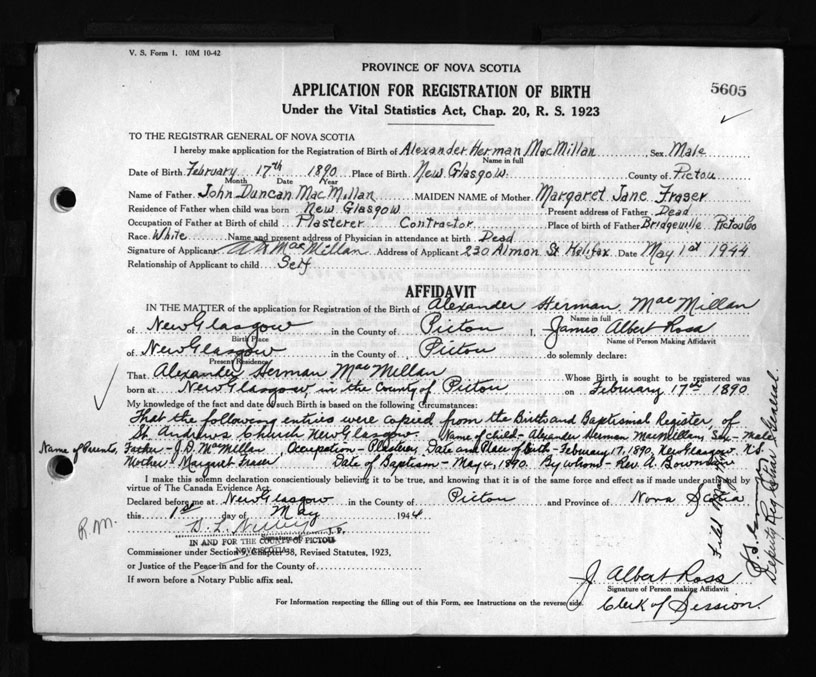 V. S. Form 1. 10M 10-42
PROVINCE OF NOVA SCOTIA
5605
APPLICATION FOR REGISTRATION OF BIRTH
Under the Vital Statistics Act, Chap. 20, R. S. 1923
TO THE REGISTRAR GENERAL OF NOVA SCOTIA
I hereby make application for the Registration of Birth of Alexander Herman MacMillan, Sex Male
Name in full
Date of Birth February 17th 1890 Place of Birth New Glasgow. County of Pictou
Month Date Year
Name of Father John Duncan MacMillan MAIDEN NAME of Mother Margaret Jane Fraser
Residence of Father when child was born New Glasgow Present address of Father Dead
Occupation of Father at Birth of child Plasterer Contractor Place of birth of Father Bridgeville Pictou Co
Race White Name and present address of Physician in attendance at birth Dead
Signature of Applicant A H MacMillan Address of Applicant 230 Almon St Halifax Date May 1st 1944
Relationship of Applicant to child Self
AFFIDAVIT
IN THE MATTER of the application for Registration of the Birth of Alexander Herman MacMillan
Name in full
of New Glasgow in the County of Pictou I, James Albert Ross
Birth Place Name of Person Making Affidavit
of New Glasgow in the County of Pictou do solemnly declare:
Present Residence
That Alexander Herman MacMillan Whose Birth is sought to be registered was
born at New Glasgow, in the County of Pictou on February 17th 1890
My knowledge of the fact and date of such Birth is based on the following Circumstances:
That the following entries were copied from the Birth and Baptismal Register, of
St. Andrews Church New Glasgow. Name of child - Alexander Herman MacMillan, Sex - Male
Name of Parents, Father - J.D. McMillan, Occupation - Plasterer, Date and Place of Birth - February 17, 1890, New Glasgow N.S.
Mother - Margaret Fraser Date of Baptism - May 4, 1890. By whom - Rev. A. Bowman
I make this solemn declaration conscientiously believing it to be true, and knowing that it is of the same force and effect as if made under oath and by
virtue of The Canada Evidence Act.
Declared before me at New Glasgow in the County of Pictou and Province of Nova Scotia
this 1st day of May 1944
R.M.
J. P.
IN AND FOR THE COUNTY OF PICTOU
NOVA SCOTIA
Commissioner under Section 9, Chapter 38, Revised Statutes, 1923,
or Justice of the Peace in and for the County of
If sworn before a Notary Public affix seal.
J. Albert Ross
Signature of Person making Affidavit
Clerk of Session.
For Information respecting the filling out of this Form, see Instructions on the reverse side.
Filed
Deputy Registrar General.